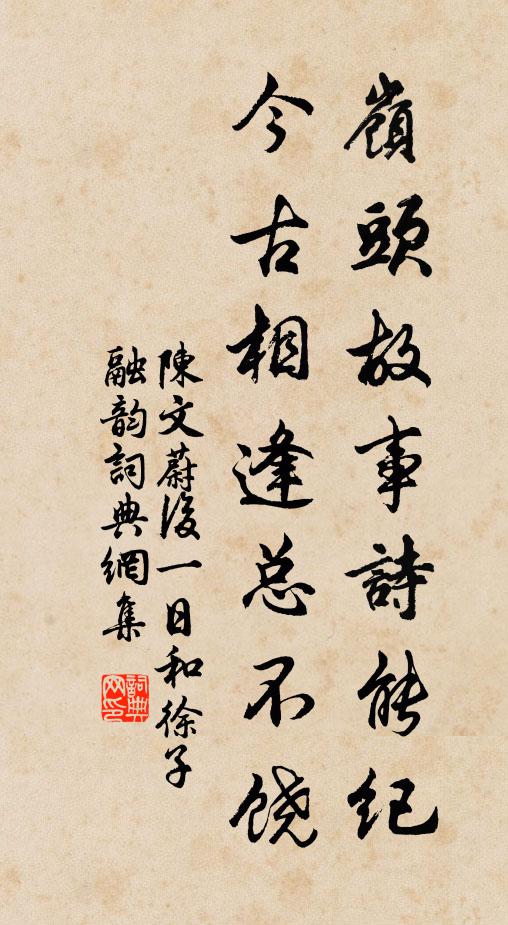 嶺頭故事詩能紀
今古相逢总不饶
陳文蔚後一日和徐子
融韵詞典網集
詞典网印